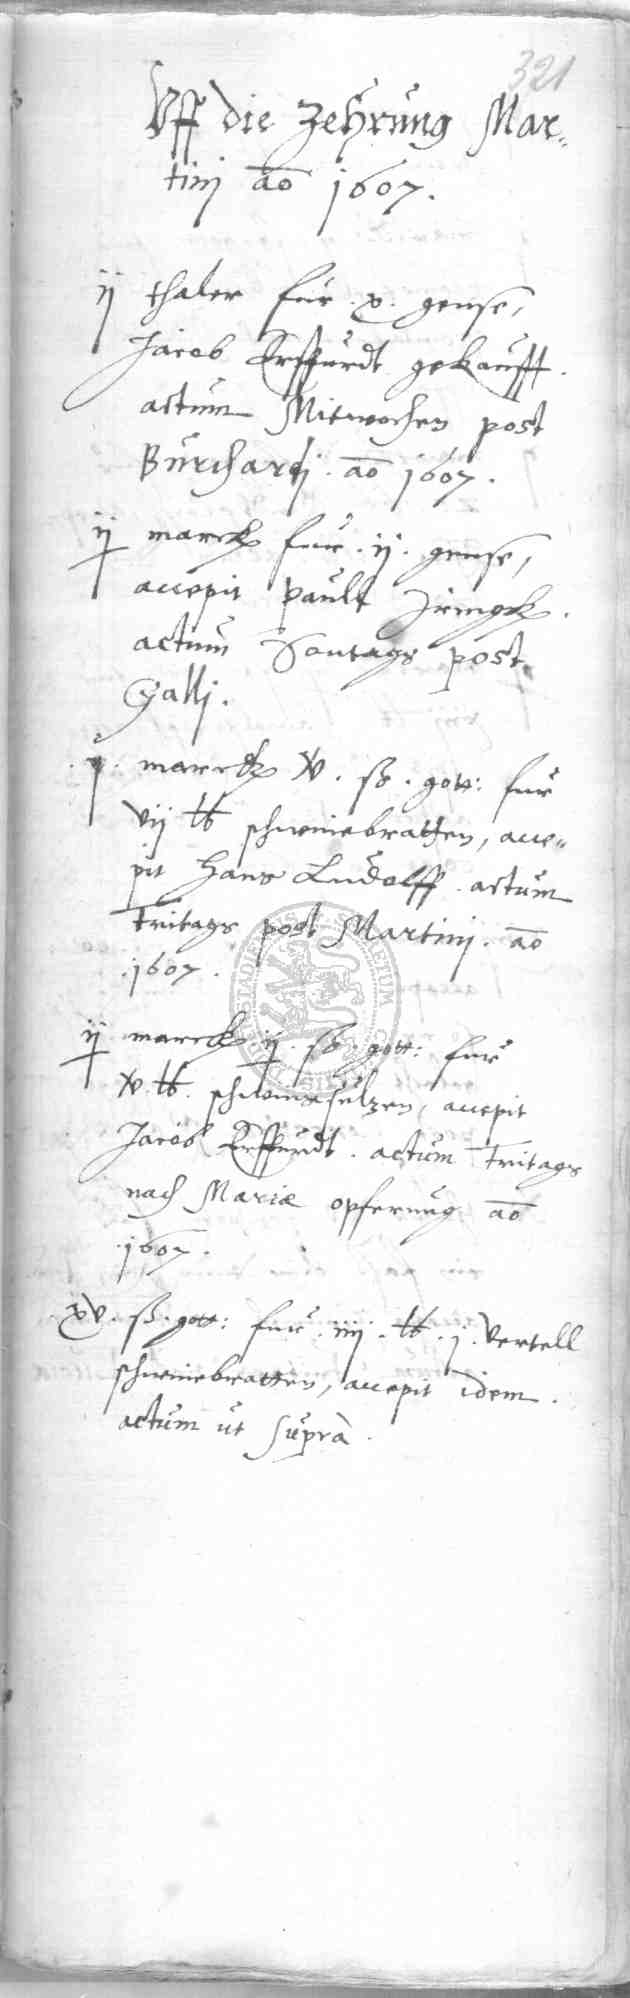 321
Uff die Zehrung Mar-
tinj ao 1607.
ij thaler fur .x. gense,
Jacob Erffurdt gekaufft.
actum Mitwochen post
Burchardj. ao 1607.
ij marck fur .ij. gense,
accepit Paull Iringk.
actum Sontags post
Galli.
.j. marck xv. ß. gott: fur
vij lb schweinebratten, acce-
pit Hans Ludolff. actum
Freitags post Martinj. ao
.1607.
ij marck .ij. ß. gott: fur
xv. lb. schweinssultzen, accepit
Jacob Erffurdt. actum Freitags
nach Mariæ opfernug ao
.1607.
xv. ß. gott: fur .iiij. lb .j. vertell
schweinebratten, accepit idem.
actum ut supra.